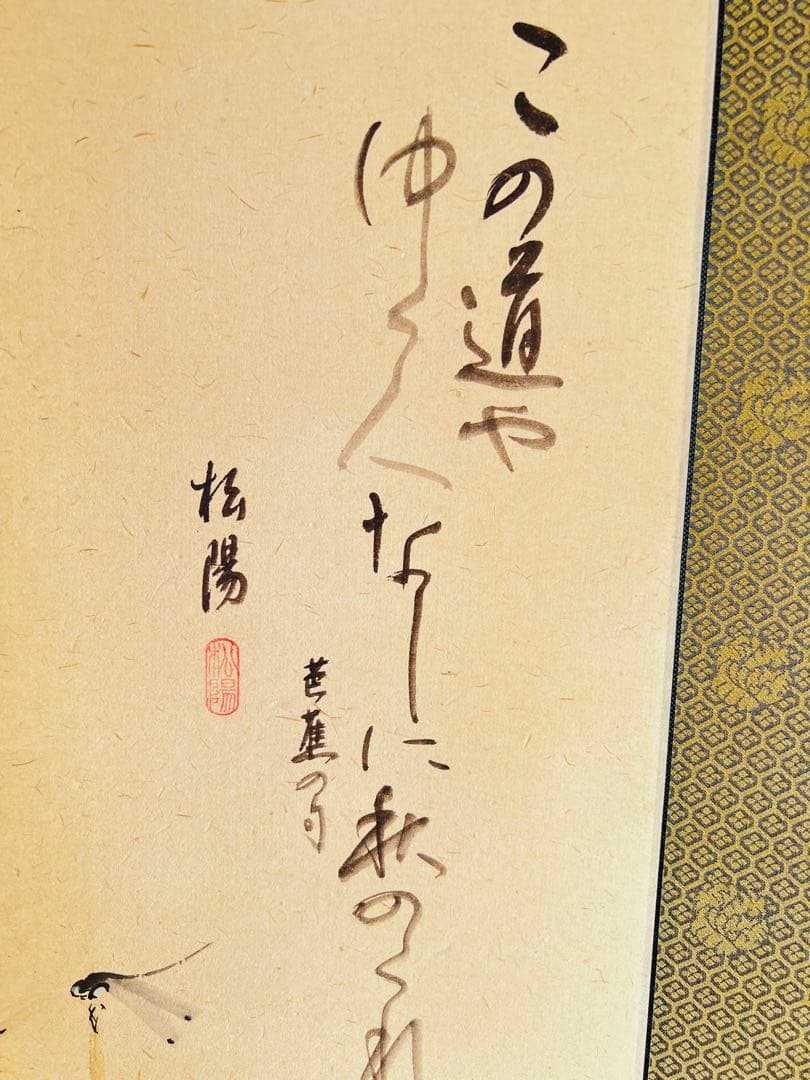 この道や
ゆく人なしに秋のくれ
芭蕉の句
松陽
松陽